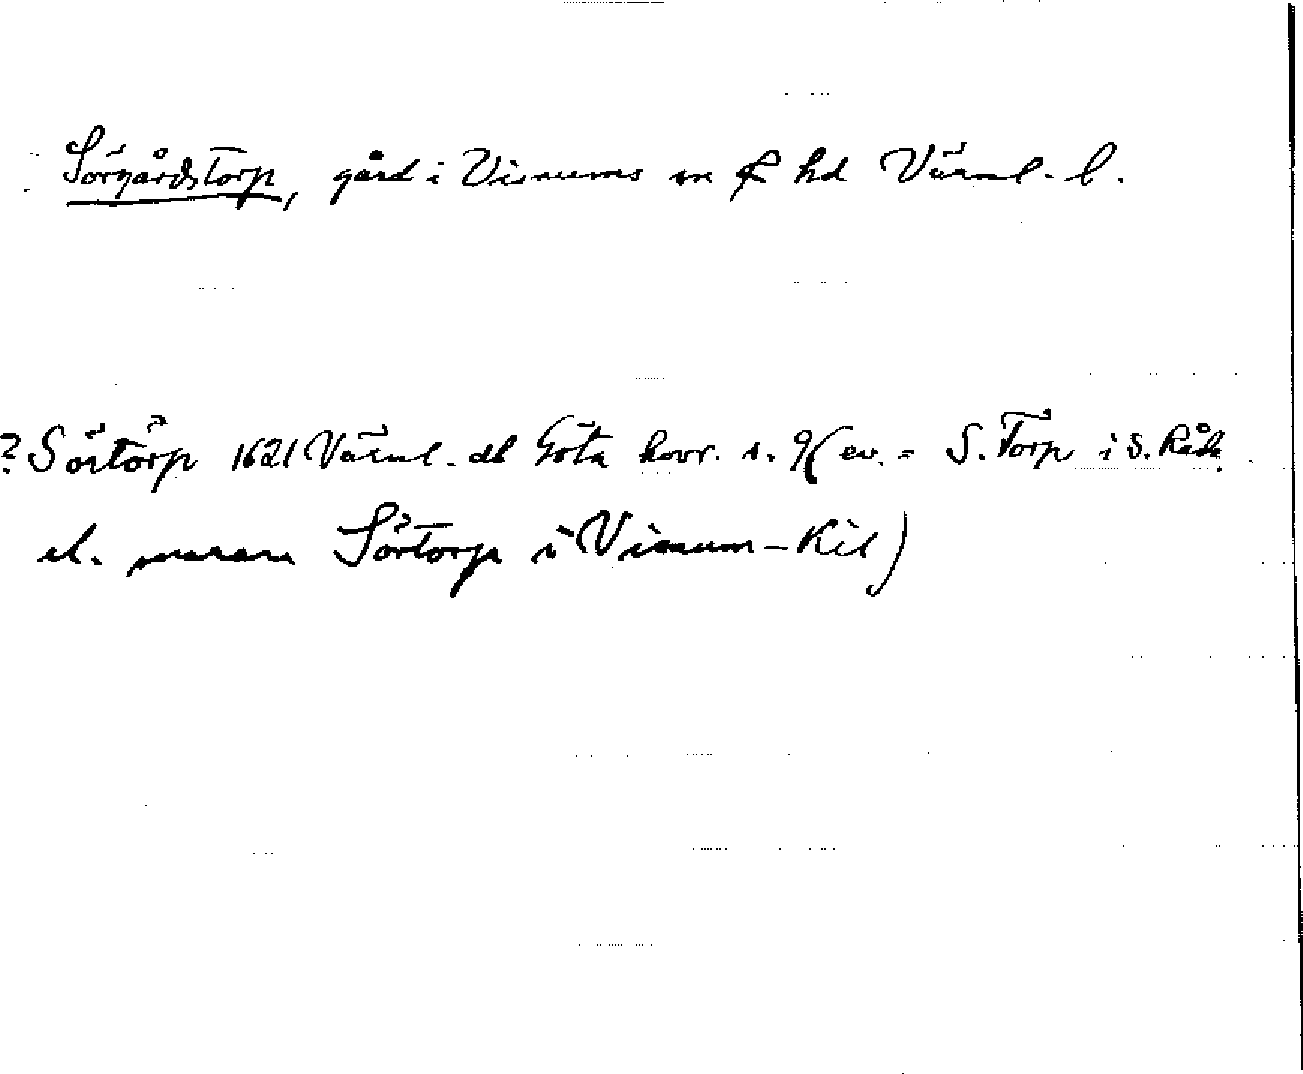 Sörgårdstorp, gård i Visnums sn o hd Värml. l.
? Sörtorp 1621 Värml. dl Göta hovr. s. 9 (ev. = S. Torp i S. Råda
el. snarare Sörtorp i Visnum-Kil)